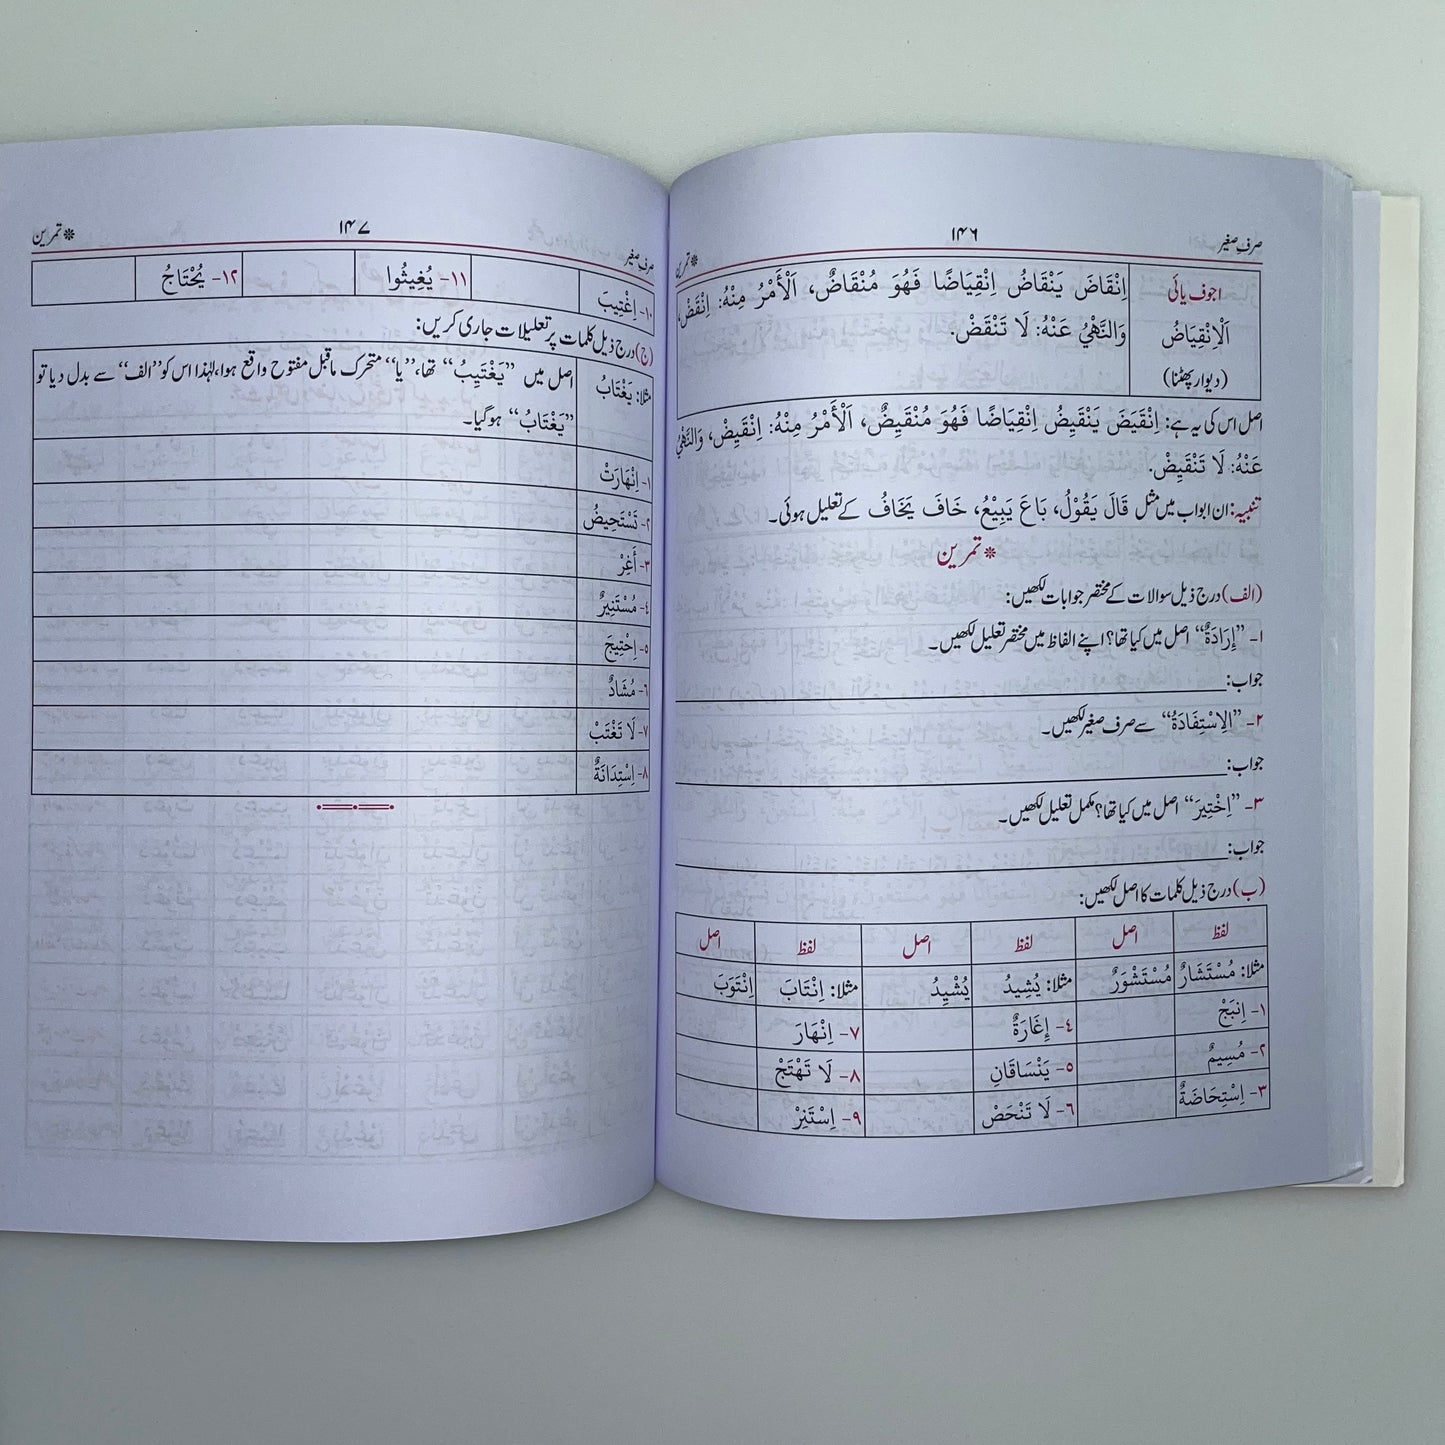 صرف صغیر ۱۴۶ ❊ تمرین
اجوف یائی
اَلْاِنْقِیَاضُ
(دیوار پھٹنا)
اِنْقَاضَ یَنْقَاضُ اِنْقِیَاضًا فَهُوَ مُنْقَاضٌ، اَلْأَمْرُ مِنْهُ: اِنْقَضْ،
وَالنَّهْيُ عَنْهُ: لَا تَنْقَضْ.
اصل اس کی یہ ہے: اِنْقَیَضَ یَنْقَیِضُ اِنْقِیَاضًا فَهُوَ مُنْقَیِضٌ، اَلْأَمْرُ مِنْهُ: اِنْقَیِضْ، وَالنَّهْيُ
عَنْهُ: لَا تَنْقَیِضْ.
تنبیہ: ان ابواب میں مثل قَالَ یَقُوْلُ، بَاعَ یَبِیْعُ، خَافَ یَخَافُ کے تعلیل ہوئی۔
❊ تمرین
(الف) درج ذیل سوالات کے مختصر جوابات لکھیں:
۱- ”إِرَادَةٌ“ اصل میں کیا تھا؟ اپنے الفاظ میں مختصر تعلیل لکھیں۔
جواب:
۲- ”اَلِاسْتِفَادَةُ“ سے صرف صغیر لکھیں۔
جواب:
۳- ”اِخْتِیرَ“ اصل میں کیا تھا؟ مکمل تعلیل لکھیں۔
جواب:
(ب) درج ذیل کلمات کا اصل لکھیں:
لفظ اصل لفظ اصل لفظ اصل
مثلا: مُسْتَشَارٌ مُسْتَشْوَرٌ مثلا: یُشِیدُ یُشْیِدُ مثلا: اِنْتَابَ اِنْتَوَبَ
۱- اِنبَجْ ۴- إِغَارَةٌ ۷- اِنْهَارَ
۲- مُسِیمٌ ۵- یَنْسَاقَانِ ۸- لَا تَهْتَجْ
۳- اِسْتِحَاضَةٌ ۶- لَا تَنْحَصْ ۹- اِسْتَنِرْ
صرف صغیر ۱۴۷ ❊ تمرین
۱۰- اِغْتِیبَ ۱۱- یُغِیثُوا ۱۲- یُحْتَاجُ
(ج) درج ذیل کلمات پر تعلیلات جاری کریں:
مثلا: یَغْتَابُ اصل میں ”یَغْتَیِبُ“ تھا، ”یا“ متحرک ماقبل مفتوح واقع ہوا، لہٰذا اس کو ”الف“ سے بدل دیا تو
”یَغْتَابُ“ ہو گیا۔
۱- اِنْهَارَتْ
۲- تَسْتَحِیضُ
۳- أَغِرْ
۴- مُسْتَنِیرٌ
۵- اِحْتِیجَ
۶- مُشَادٌ
۷- لَا تَغْتَبْ
۸- اِسْتِدَانَةٌ